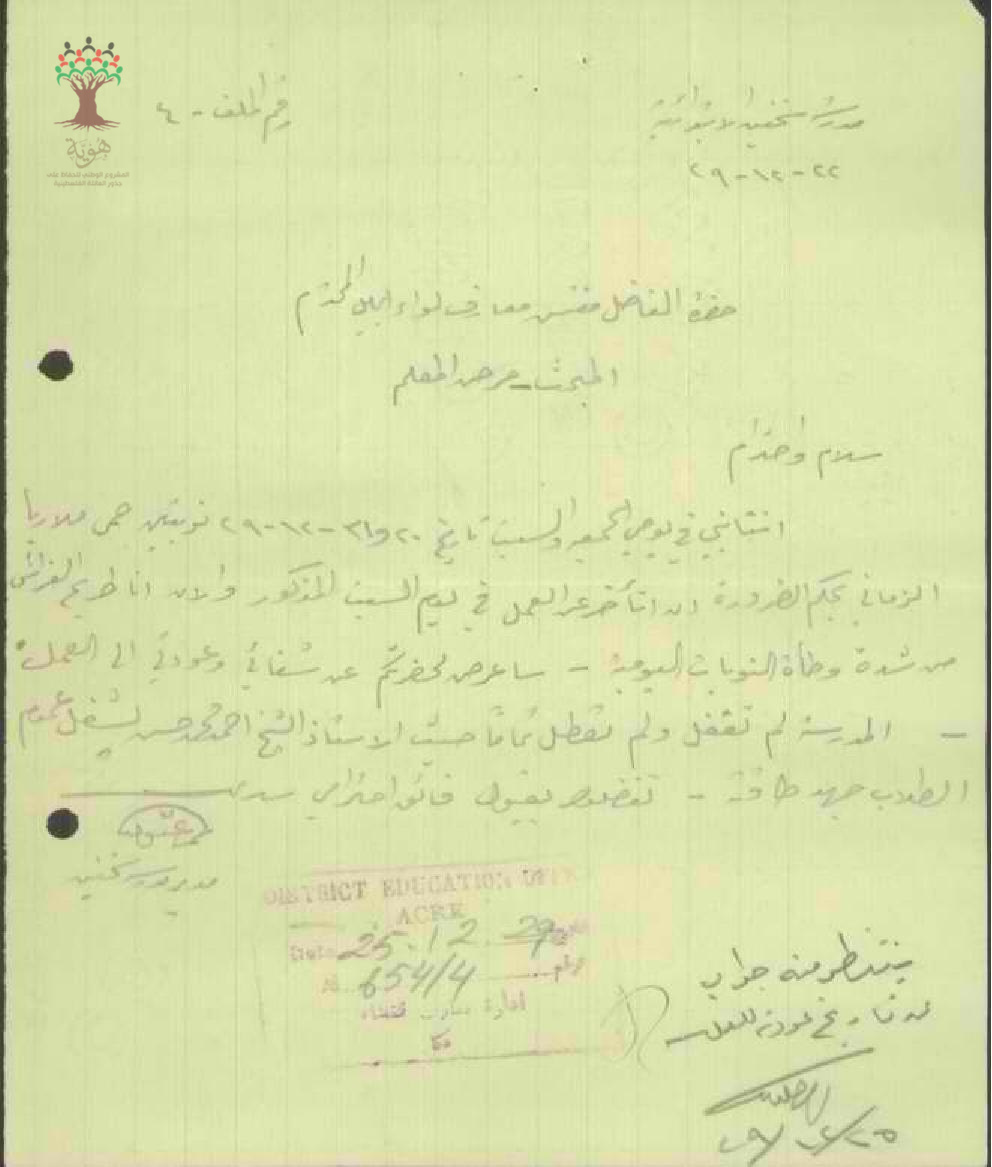 هُوِيَّة
المشروع الوطني للحفاظ على
جذور العائلة الفلسطينية
مدرسة سخنين الابتدائية
رقم الملف - ٤
٢٢-١٢-٢٩
حضرة الفاضل مفتش معارف لواء الجليل المحترم
المبحث - مرض المعلم
سلام واحترام
انتابني في يومي الجمعه والسبت تاريخ ٢٠ و٢١-١٢-٢٩ نوبتين حمى ملاريا
الزماني بحكم الضرورة ان اتأخر عن العمل في يوم السبت المذكور والان انا طريح الفراش
من شدة وطأة النوبات اليومية - ساعرض لحضرتكم عن شفائي وعودتي الى العمل
- المدرسة لم تقفل ولم تعطل تماما حيث الاستاذ الشيخ احمد محمد حسن يشغل عموم
الطلاب جهد طاقته - تفضلوا بقبول فائق احترامي سيدي
مدير مدرسة سخنين
DISTRICT EDUCATION OFF
ACRE
Date 25.12.29
No 654/4 رقم
ادارة معارف قضاء
عكا
ينتظر منه جواب
عن تاريخ عودته للعمل
٢٥/١٢/٢٩